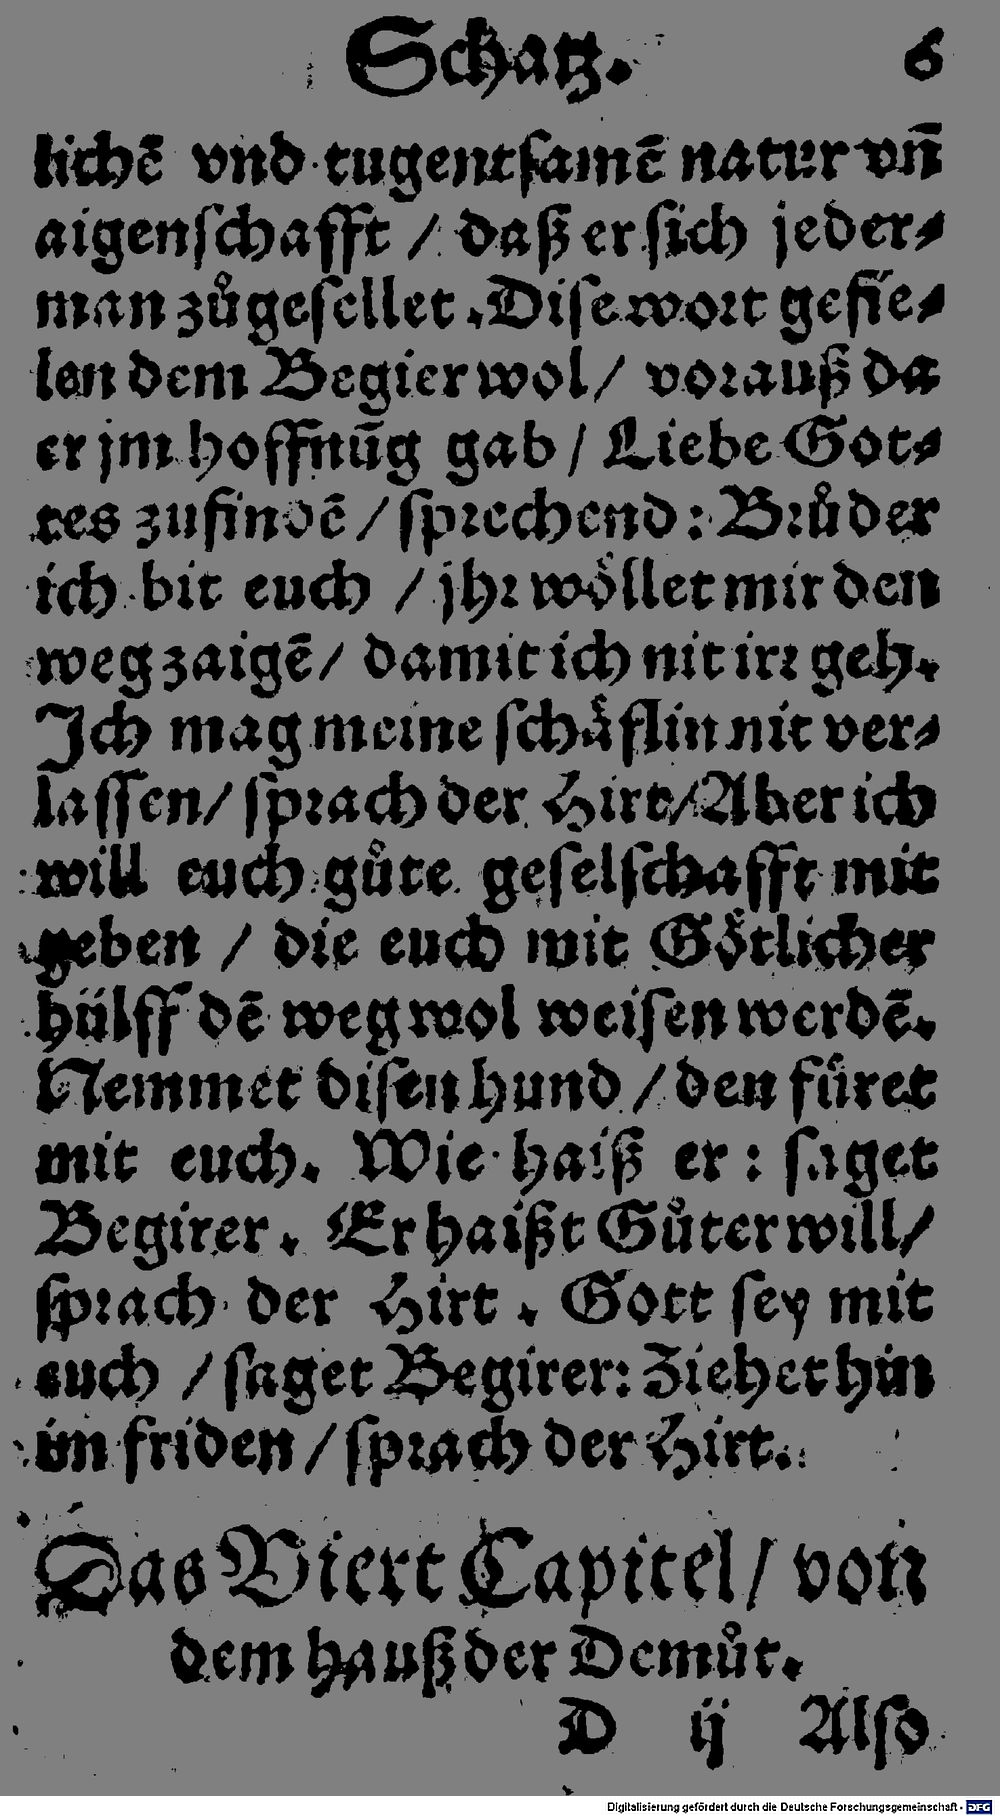 Schatz. 6
lichē vnd tugentsamē natur vn̄
aigenschafft / daß er sich jeder⸗
man zůgesellet. Dise wort gefie⸗
len dem Begier wol / vorauß da
er jm hoffnūg gab / Liebe Got⸗
tes zufindē / sprechend: Brůder
ich bit euch / jhr wöllet mir den
weg zaigē / damit ich nit irr geh.
Ich mag meine schäflin nit ver⸗
lassen / sprach der Hirt / Aber ich
will euch gůte geselschafft mit
geben / die euch mit Götlicher
hülff dē weg wol weisen werdē.
Nemmet disen hund / den füret
mit euch. Wie haiß er: saget
Begirer. Er haißt Gůter will /
sprach der Hirt. Gott sey mit
euch / saget Begirer: Ziehet hin
im friden / sprach der Hirt.
Das Viert Capitel / von
dem hauß der Demůt.
D ij Also
Digitalisierung gefördert durch die Deutsche Forschungsgemeinschaft - DFG